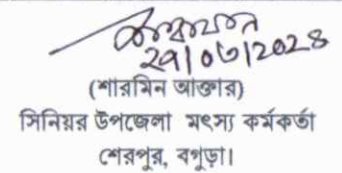 ২৭/০৩/২০২৪
(শারমিন আক্তার)
সিনিয়র উপজেলা মৎস্য কর্মকর্তা
শেরপুর, বগুড়া।